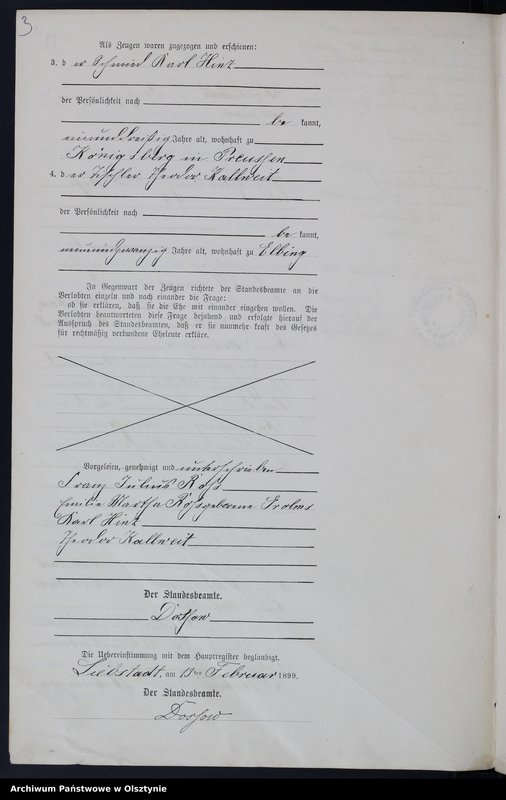 3
Als Zeugen waren zugezogen und erschienen:
3. d er Schmied Karl Hinz
der Persönlichkeit nach
be kannt,
neununddreißig Jahre alt, wohnhaft zu
Königsberg in Preussen
4. d er Tischler Theodor Kallweit
der Persönlichkeit nach
be kannt,
neunundzwanzig Jahre alt, wohnhaft zu Elbing
In Gegenwart der Zeugen richtete der Standesbeamte an die
Verlobten einzeln und nach einander die Frage:
ob sie erklären, daß sie die Ehe mit einander eingehen wollen. Die
Verlobten beantworteten diese Frage bejahend und erfolgte hierauf der
Ausspruch des Standesbeamten, daß er sie nunmehr kraft des Gesetzes
für rechtmäßig verbundene Eheleute erkläre.
Vorgelesen, genehmigt und unterschrieben
Franz Julius Roß
Emilie Martha Roß geborene Prolms
Karl Hinz
Theodor Kallweit
Der Standesbeamte.
Dossow
Die Uebereinstimmung mit dem Hauptregister beglaubigt.
Liebstadt, am 15ten Februar 1899.
Der Standesbeamte.
Dossow
Archiwum Państwowe w Olsztynie